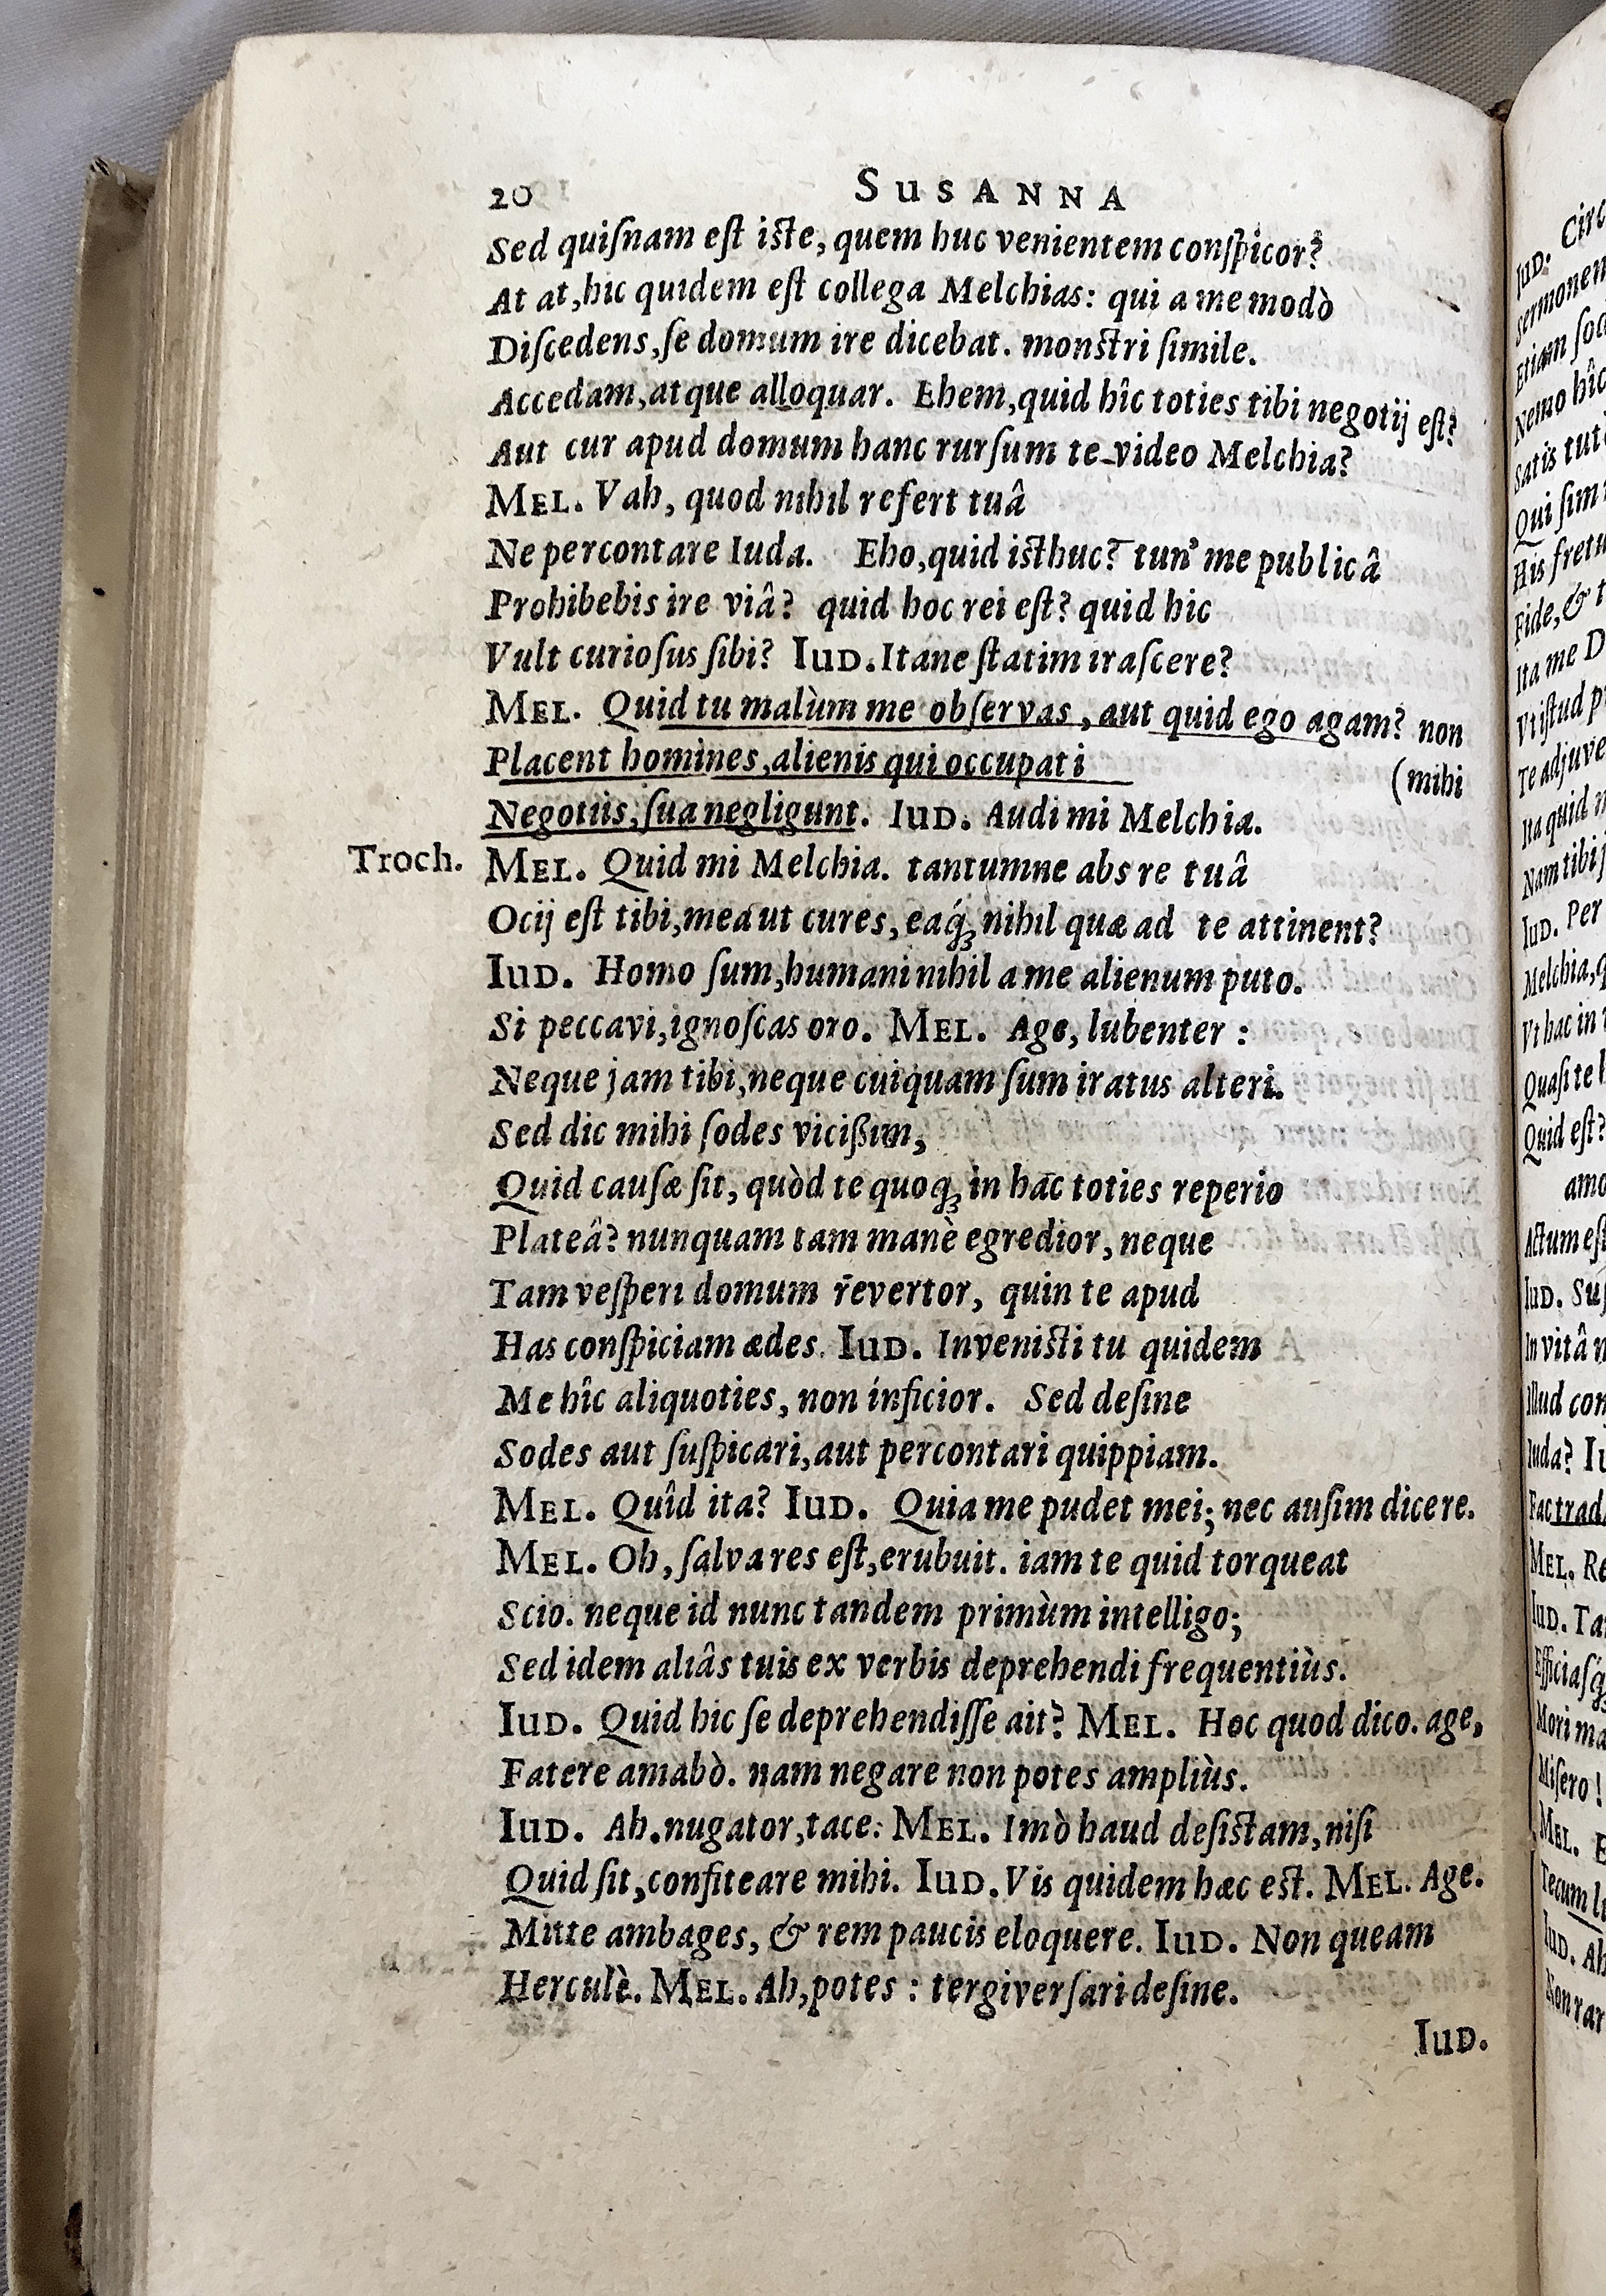 20 SUSANNA
Sed quiſnam eſt iſte, quem huc venientem conſpicor?
At at, hic quidem eſt collega Melchias: qui a me modò
Diſcedens, ſe domum ire dicebat. monſtri ſimile.
Accedam, atque alloquar. Ehem, quid hîc toties tibi negotij eſt?
Aut cur apud domum hanc rurſum te video Melchia?
MEL. Vah, quod nihil refert tuâ
Ne percontare Iuda. Eho, quid iſthuc? tun' me publicâ
Prohibebis ire viâ? quid hoc rei eſt? quid hic
Vult curioſus ſibi? IUD. Itane ſtatim iraſcere?
MEL. Quid tu malùm me obſervas, aut quid ego agam? non
Placent homines, alienis qui occupati (mihi
Negotiis, ſua negligunt. IUD. Audi mi Melchia.
Troch. MEL. Quid mi Melchia. tantumne abs re tuâ
Ocij eſt tibi, mea ut cures, eaq́; nihil quæ ad te attinent?
IUD. Homo ſum, humani nihil a me alienum puto.
Si peccavi, ignoſcas oro. MEL. Age, lubenter:
Neque jam tibi, neque cuiquam ſum iratus alteri.
Sed dic mihi ſodes vicißim,
Quid cauſæ ſit, quòd te quoq; in hac toties reperio
Plateâ? nunquam tam manè egredior, neque
Tam veſperi domum revertor, quin te apud
Has conſpiciam ædes. IUD. Inveniſti tu quidem
Me hîc aliquoties, non inficior. Sed deſine
Sodes aut ſuſpicari, aut percontari quippiam.
MEL. Quîd ita? IUD. Quia me pudet mei; nec auſim dicere.
MEL. Oh, ſalva res eſt, erubuit. iam te quid torqueat
Scio. neque id nunc tandem primùm intelligo;
Sed idem aliâs tuis ex verbis deprehendi frequentiùs.
IUD. Quid hic ſe deprehendiſſe ait? MEL. Hoc quod dico. age,
Fatere amabò. nam negare non potes ampliùs.
IUD. Ah. nugator, tace: MEL. Imò haud deſiſtam, niſi
Quid ſit, confiteare mihi. IUD. Vis quidem hæc eſt. MEL. Age.
Mitte ambages, & rem paucis eloquere. IUD. Non queam
Herculè. MEL. Ah, potes: tergiverſari deſine.
IUD.
IUD.
Etiam
Nemo hîc
Satis
Qui ſim
Fide, &
Ita me D
Te adjuve
Ita quid
IUD. Per
Melchia,
Vt hac in
Quid eſt?
IUD.
In vitâ
Iuda?
MEL.
IUD.
Miſero!
MEL.
IUD. Ah